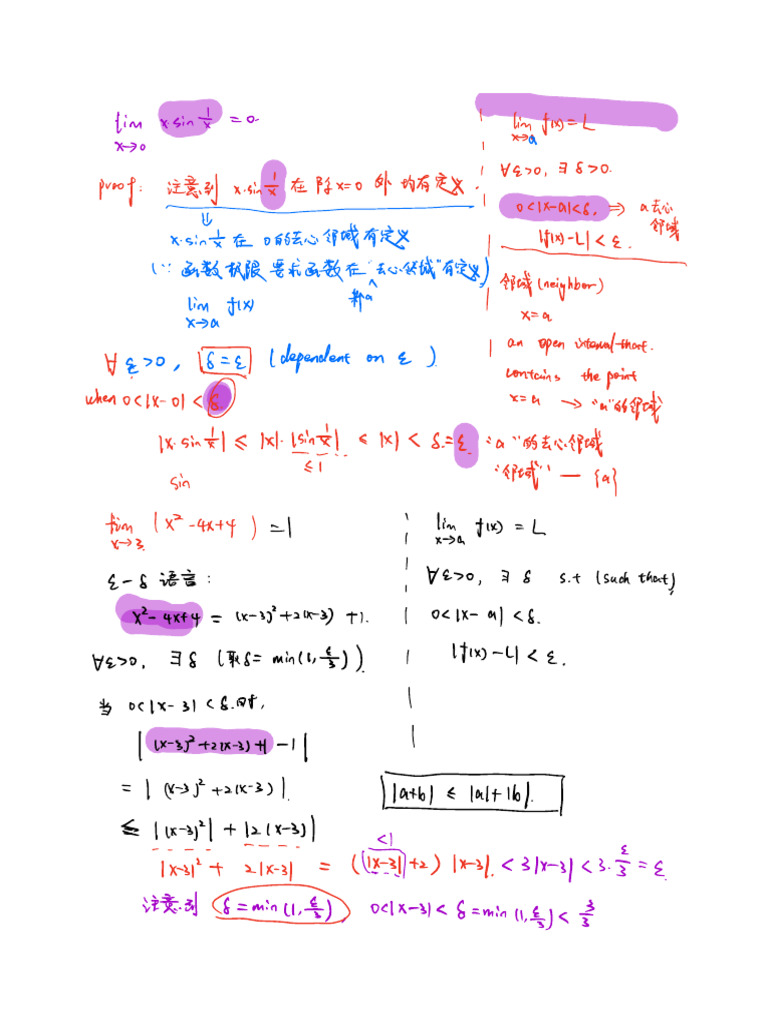 lim x·sin 1/x = 0.
x→0
proof: 注意到 x·sin 1/x 在除 x=0 外均有定义.
⇓
x·sin 1/x 在 0的去心邻域有定义
(∵ 函数极限要求函数在"去心邻域"有定义)
lim f(x)
x→a
∀ε>0, δ=ε (dependent on ε).
when 0<|x-0|<δ
|x·sin 1/x| ≤ |x|·|sin 1/x| ≤ |x| < δ=ε
≤1
sin
lim f(x)=L
x→a
∀ε>0, ∃ δ>0.
0<|x-a|<δ. ⇒ a去心
邻域
|f(x)-L|<ε.
邻域(neighbor)
x=a
an open interval that.
contains the point
x=a → "a"的邻域
"a"的去心邻域
"邻域" — {a}
lim (x²-4x+4)=1
x→3.
ε-δ 语言:
x²-4x+4 = (x-3)²+2(x-3)+1.
∀ε>0, ∃ δ (取δ= min(1, ε/3)).
当 0<|x-3|<δ.时,
|(x-3)²+2(x-3)+1-1|
= |(x-3)²+2(x-3)|.
≤ |(x-3)²|+|2(x-3)|
<1
|x-3|²+ 2|x-3| = (|x-3|+2)|x-3|. <3|x-3|<3·ε/3=ε.
注意到 δ=min(1, ε/3) 0<|x-3|<δ=min(1, ε/3)<3/3
lim f(x)=L
x→a
∀ε>0, ∃ δ s.t (such that),
0<|x-a|<δ.
|f(x)-L|<ε.
|a+b| ≤ |a|+|b|.